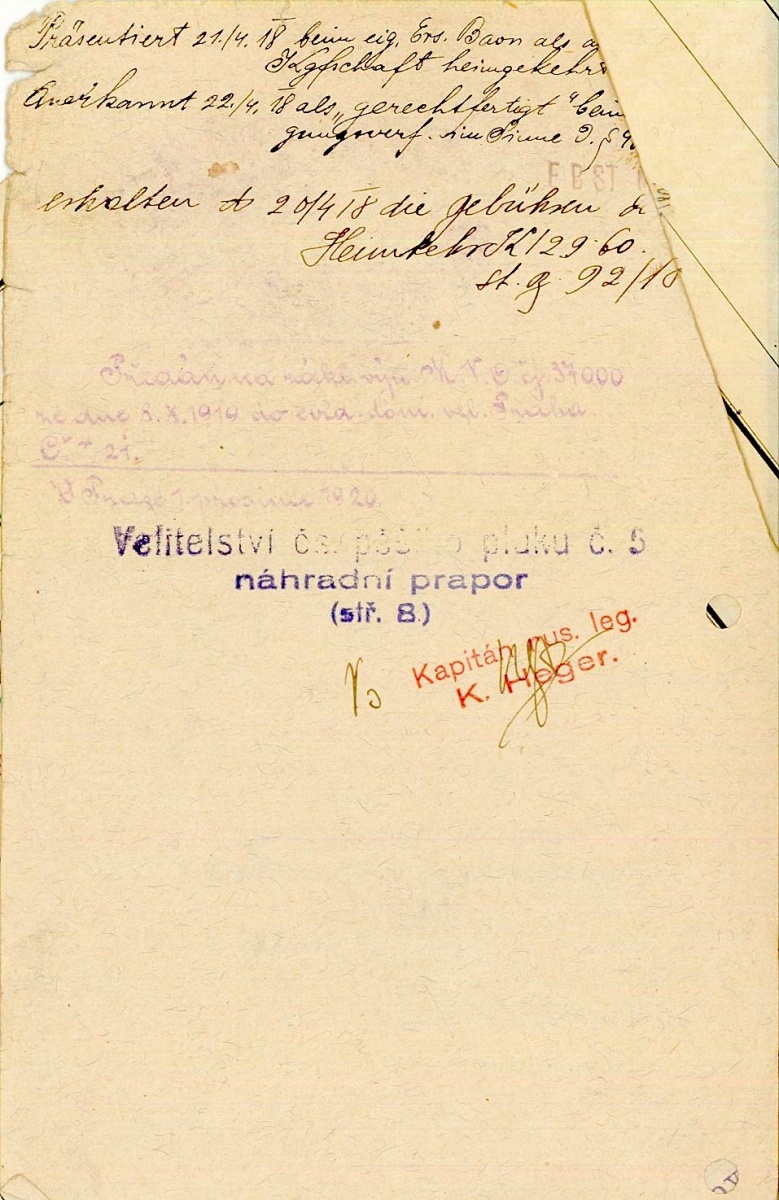 Präsentiert 21./4. 18 beim eig. Ers. Baon als a
Kgfschaft heimgekehrt
Anerkannt 22./4. 18 als „gerechtfertigt“ beim
gungsverf. im Sinne D. §
F B ST
erhalten 20/4 18 die gebühren
HeimkehrK 129·60.
st. g 92/18
Přidán na zákl. výn. M.N.O. čj. 37000
ze dne 8.X.1919 do evid. dopl. vel. Praha
Č. 21.
V Praze 1. prosince 1920.
Velitelství čs. pěšího pluku č. 5
náhradní prapor
(stř. 8.)
Kapitán rus. leg.
K. Heger.